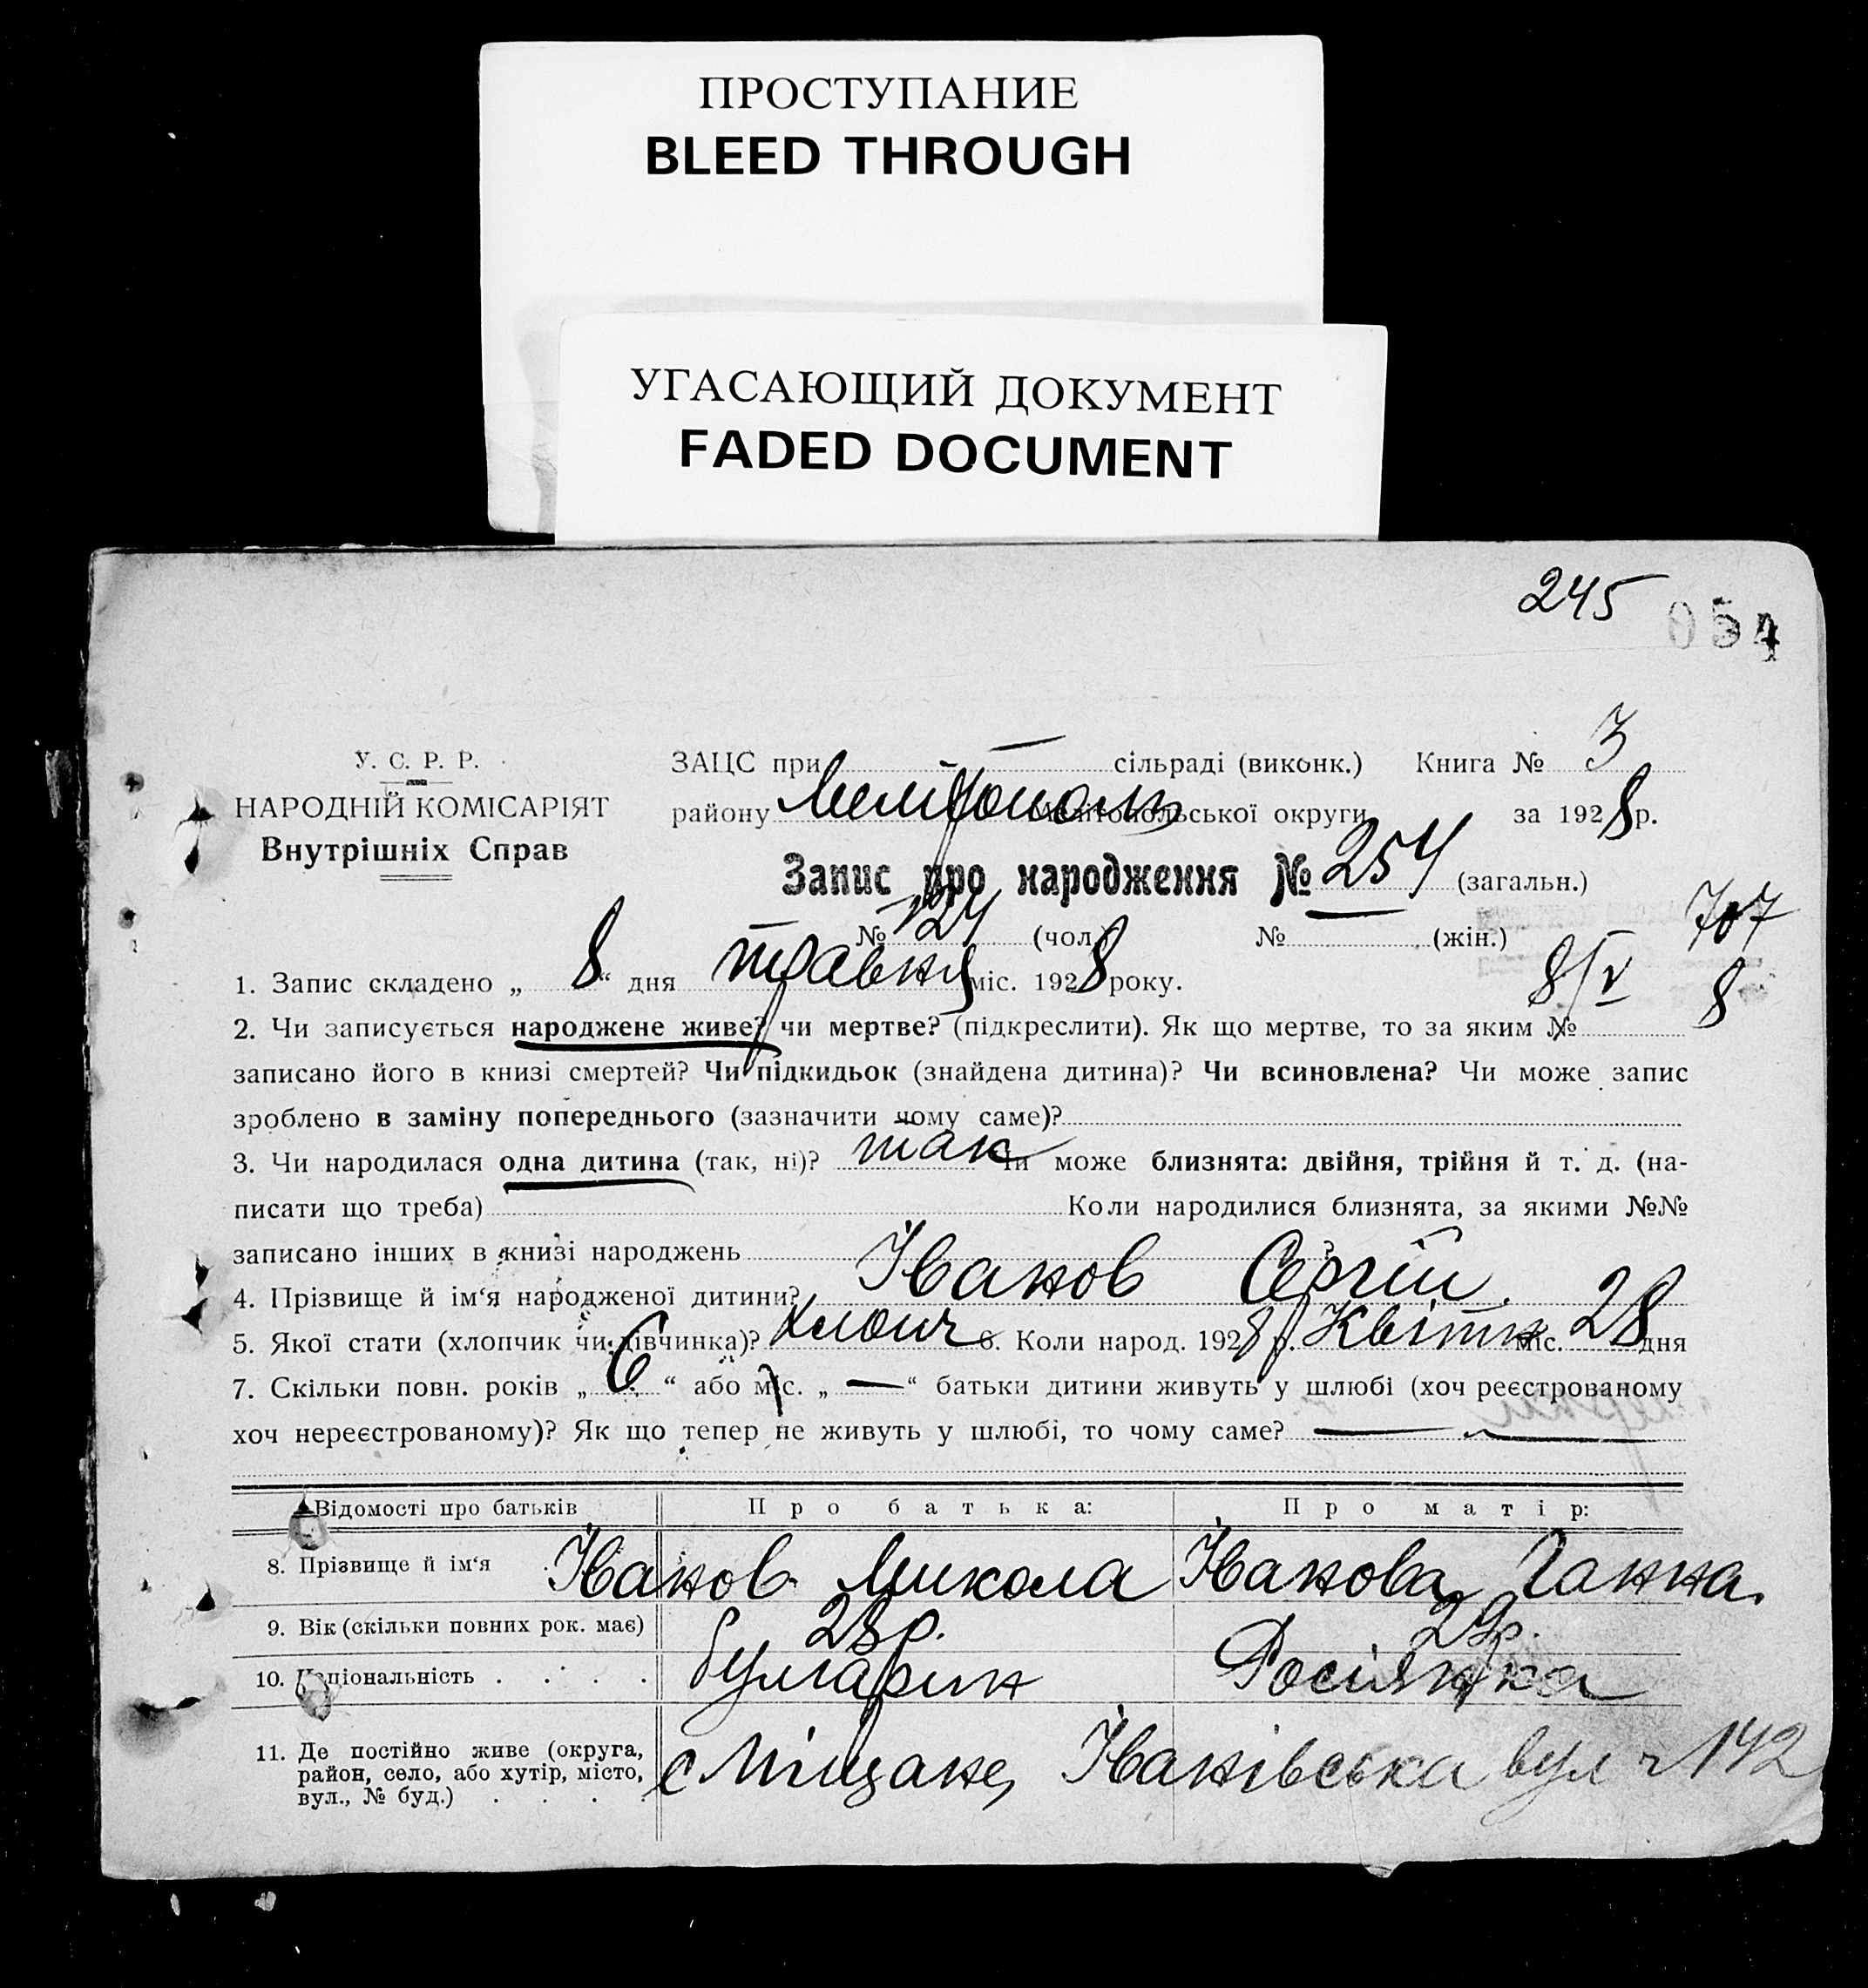 ПРОСТУПАНИЕ
BLEED THROUGH
УГАСАЮЩИЙ ДОКУМЕНТ
FADED DOCUMENT
245
054
У. С. Р. Р.
НАРОДНІЙ КОМІСАРІЯТ
Внутрішніх Справ
ЗАЦС при — сільраді (виконк.) Книга № 3
району Мелітополь Мелітопольської округи за 1928 р.
Запис про народження № 254 (загальн.)
№ 124 (чол.) № (жін.)
707
8/V 8
1. Запис складено „ 8 “ дня травня міс. 1928 року.
2. Чи записується народжене живе? чи мертве? (підкреслити). Як що мертве, то за яким №
записано його в книзі смертей? Чи підкидьок (знайдена дитина)? Чи всиновлена? Чи може запис
зроблено в заміну попереднього (зазначити чому саме)?
3. Чи народилася одна дитина (так, ні)? так Чи може близнята: двійня, трійня й т. д. (на-
писати що треба) Коли народилися близнята, за якими №№
записано інших в книзі народжень ?
4. Прізвище й ім‘я народженої дитини? Іванов Сергій.
5. Якої стати (хлопчик чи дівчинка)? хлопч 6. Коли народ. 1928 р. Квітн міс. 28 дня
7. Скільки повн. років „ 6 “ або міс. „ — “ батьки дитини живуть у шлюбі (хоч реєстрованому
хоч нереєстрованому)? Як що тепер не живуть у шлюбі, то чому саме? —
Відомості про батьків Про батька: Про матір:
8. Прізвище й ім‘я . Іванов Микола Іванова Ганна.
9. Вік (скільки повних рок. має) 28 р. 29 р.
10. Національність . . . . Булгарин Росіянка
11. Де постійно живе (округа,
район, село, або хутір, місто,
вул., № буд.) . . . .
с Міщане, Іванівська вул ч 142